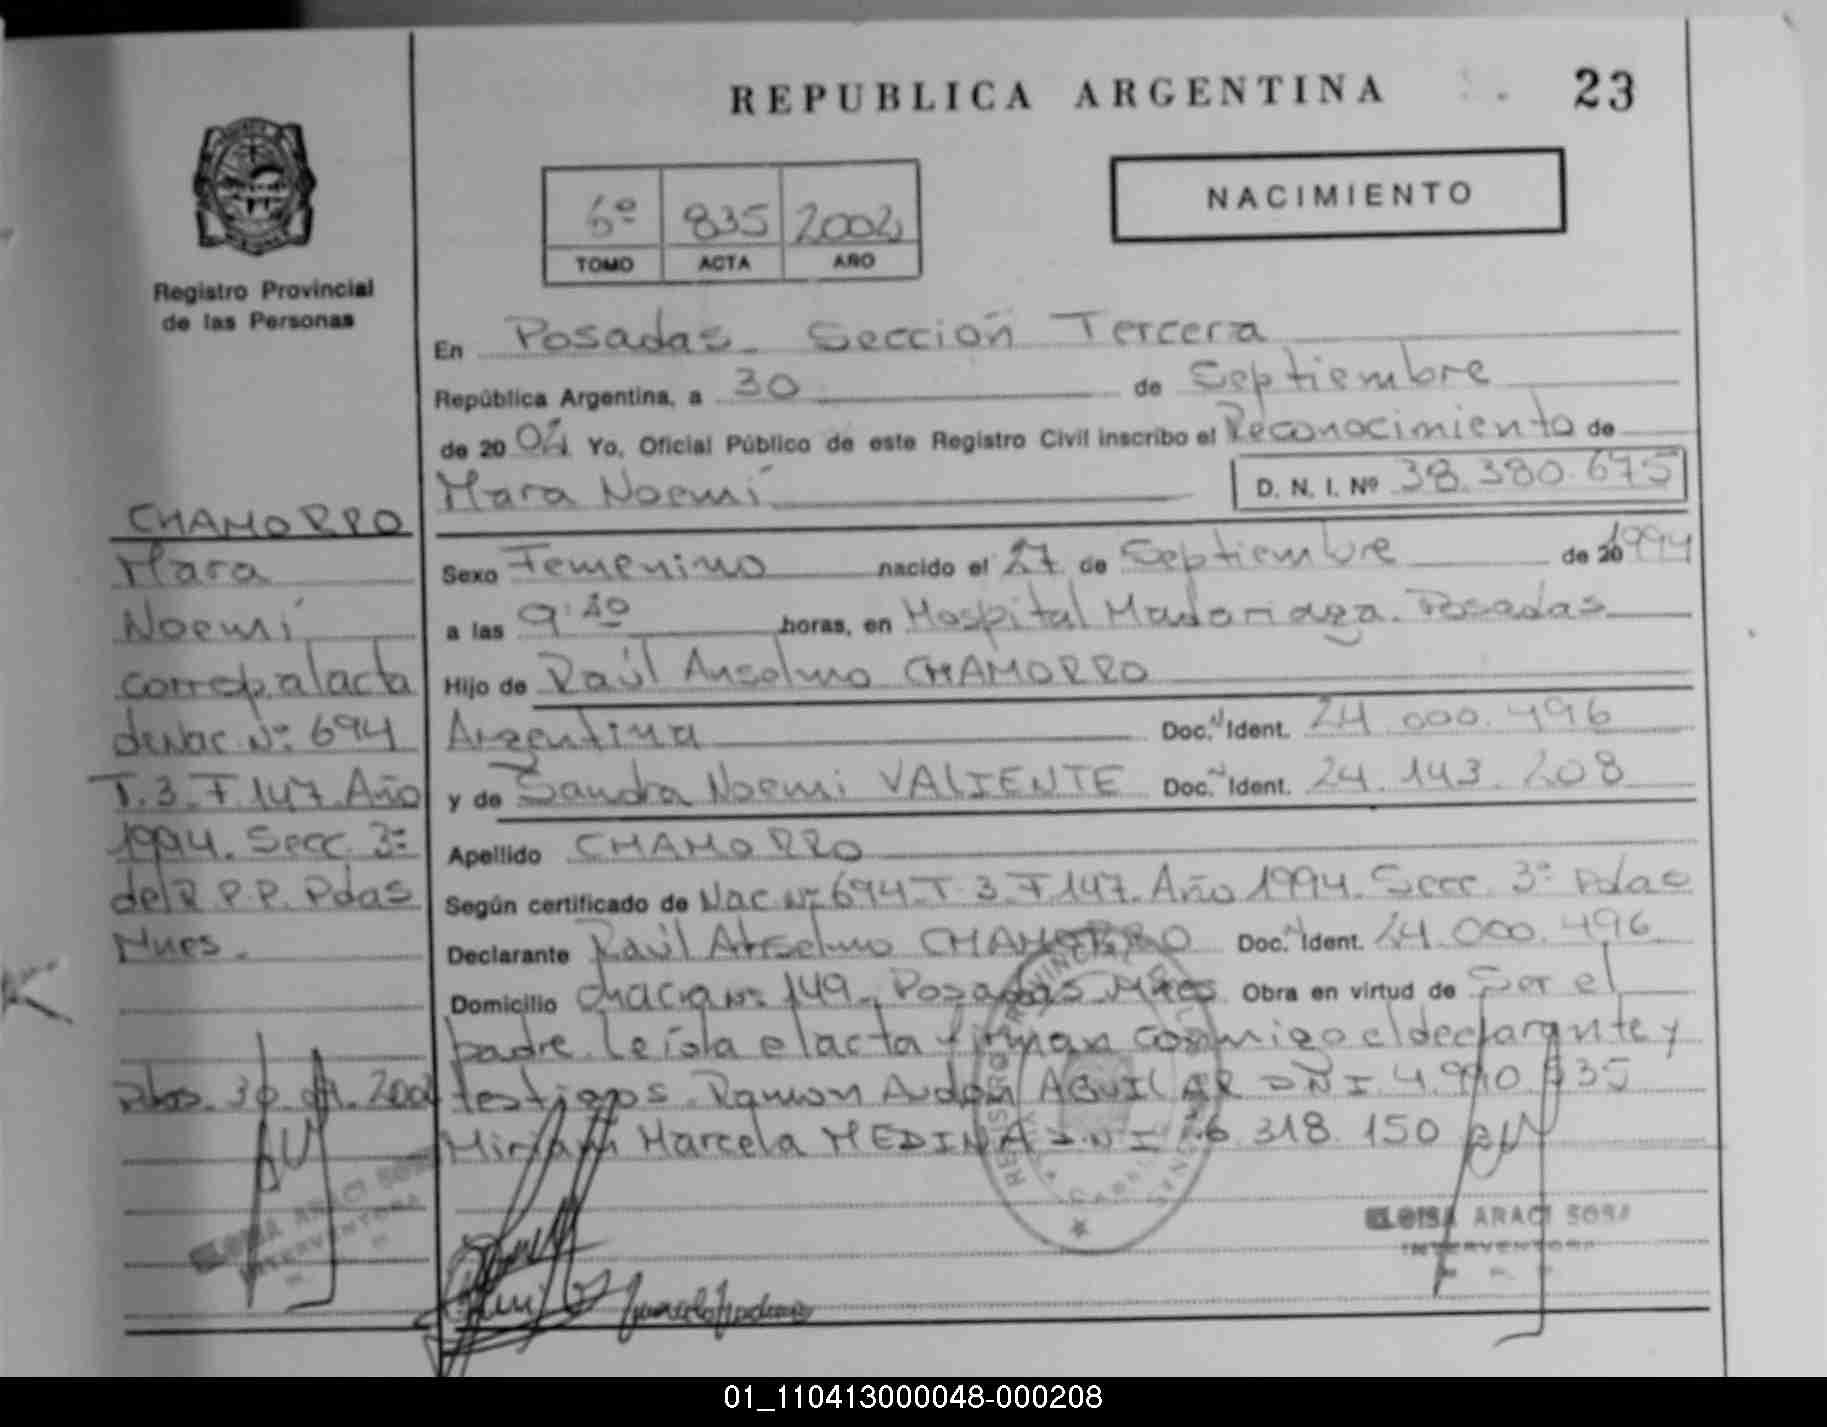 REPUBLICA ARGENTINA
23
NACIMIENTO
6º 835 2002
TOMO ACTA AÑO
Registro Provincial
de las Personas
En Posadas - Sección Tercera
República Argentina, a 30 de Septiembre
de 2002 Yo, Oficial Público de este Registro Civil inscribo el Reconocimiento de
Mara Noemí D. N. I. Nº 38.380.675
Sexo Femenino nacido el 27 de Septiembre de 20 1994
a las 9:40 horas, en Hospital Madariaga. Posadas
Hijo de Raúl Anselmo CHAMORRO
Argentina Doc. N Ident. 24.000.496
y de Sandra Noemi VALIENTE Doc. N Ident. 24.143.208
Apellido CHAMORRO
Según certificado de Nac Nº 694 T. 3. F 147. Año 1994. Secc. 3ª Pdas
Declarante Raúl Anselmo CHAMORRO Doc. N Ident. 24.000.496
Domicilio chacra Nº 149. Posadas Mnes Obra en virtud de Ser el
padre. Leída el acta firman conmigo el declarante y
testigos. Ramon Audon AGUILAR DNI 4.990.535
Miriam Marcela MEDINA D.N.I 318.150
CHAMORRO
Mara
Noemí
corresp. al acta
de Nac. Nº 694
T. 3. F 147 Año
1994. Secc. 3ª
del R.P.P. Pdas
Mnes.
Pdas. 30. 09. 2002
ELOISA ARACI SOSA
INTERVENTORA
ELOISA ARACI SOSA
INTERVENTORA
01_110413000048-000208